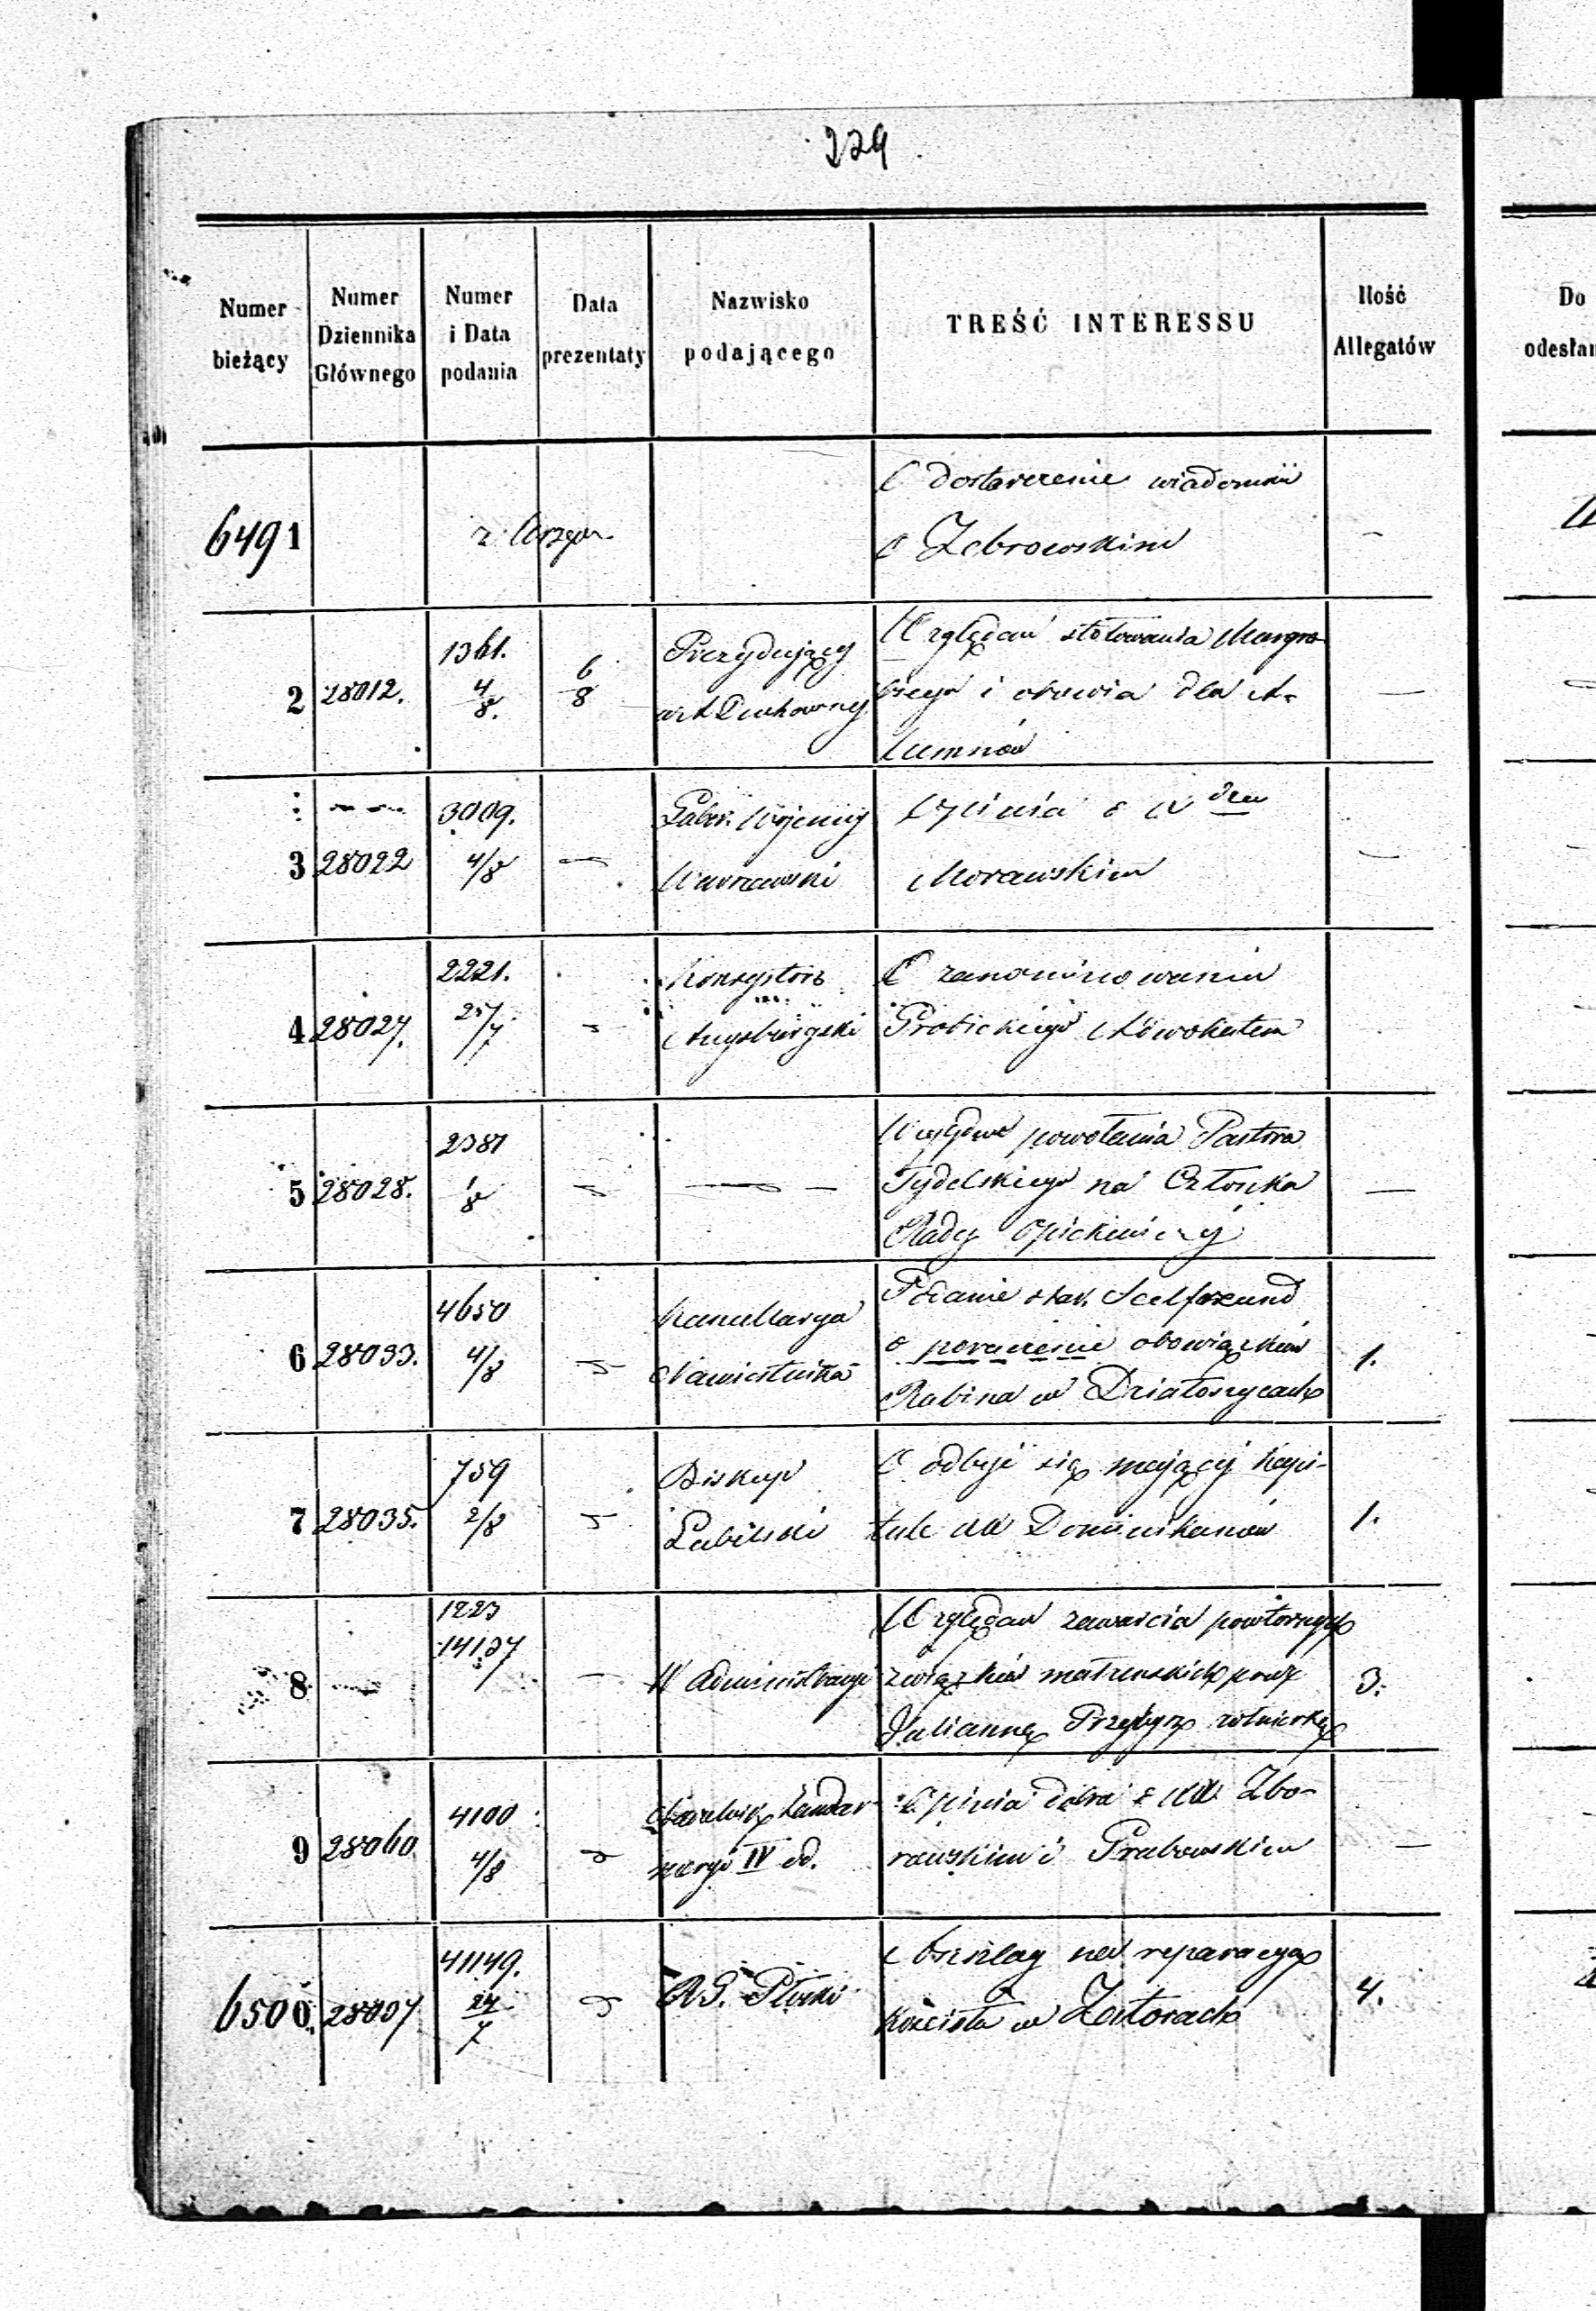 229
Numer bieżący
Numer Dziennika Głównego
Numer i Data podania
Data prezentaty
Nazwisko podającego
TREŚĆ INTERESSU
Ilość Allegatów
Do
6491
z Urzędu
O dostarczenie wiadomości
o Żebrowskim
—
2
28012.
1361.
4/8.
6/8
Prezydujący
w Duchowney
Względem stołowania
i obuwia dla A-
lumnów
—
3
28022
3009.
4/8
—
Guber. Wojenny
Warszawski
Opinia o
Morawskim
—
4
28027.
2221.
25/7
Konsystorz
Augsburgski
O zanominowaniu
Adwokatem
5
28028.
2381
1/8
—
Względem powołania Pastora
Tydelskiego na Członka
Rady Opiekuńczej
—
6
28033.
4650
4/8
Kancellarya
Namiestnika
Podanie star.
o poruczenie obowiązków
Rabina w Działoszycach
1.
7
28035.
759
2/8
Biskup
Lubelski
O odbyć się mającej Kapi-
tule XX Dominikanów
1.
8
1223
14137
—
W Administracyi
Względem zawarcia powtórnych
związków małżeńskich przez
Juliannę Przybysz żołnierkę
3.
9
28060
4100
4/8
Naczelnik Żandar-
meryi IV od.
Opinia dobra o XX. Zbo-
rawskim i Grabowskim
—
6500
28037
41149.
24/7
R G. Płocki
Anszlag na reparacyą
Kościoła w Zatorach
4.